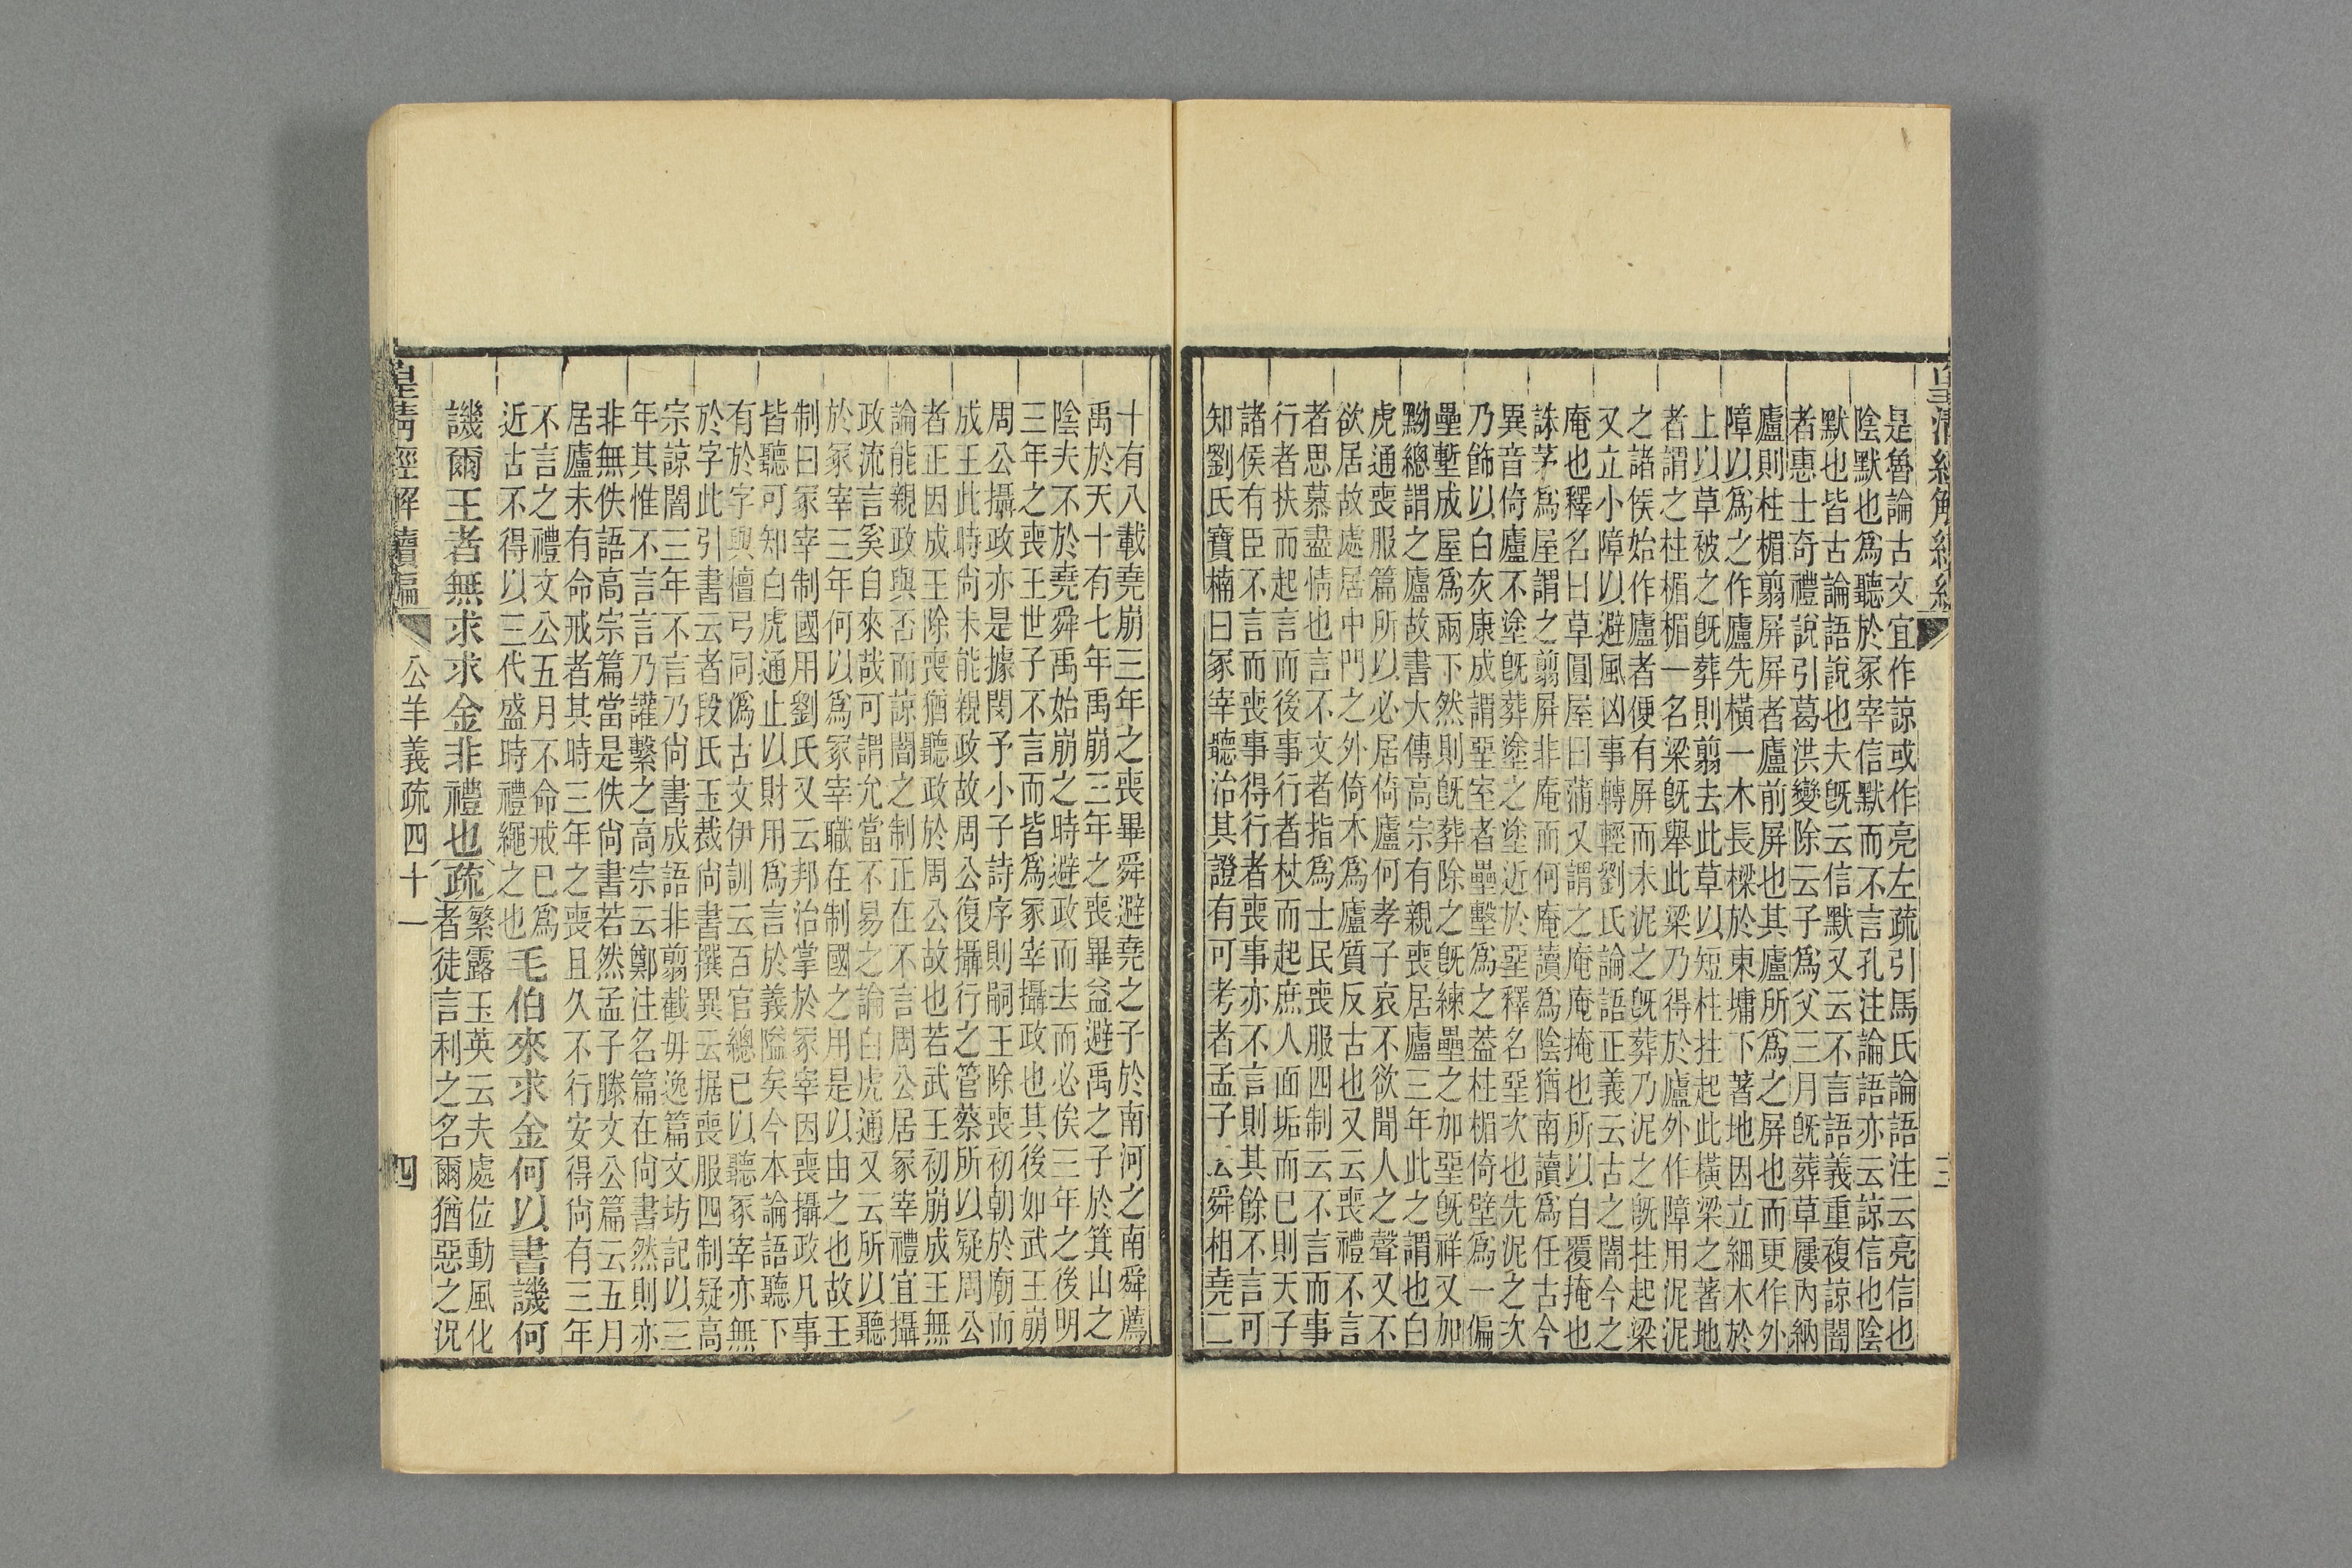 皇清經解續編
三
是魯論古文宜作諒或作亮左疏引馬氏論語注云亮信也
陰默也為聽於冢宰信默而不言孔注論語亦云諒信也陰
默也皆古論語說也夫既云信默又云不言語義重複諒闇
者惠士奇禮說引葛洪變除云子為父三月既葬草屨內納
廬則柱楣翦屏屏者廬前屏也其廬所為之屏也而更作外
障以為之作廬先橫一木長樑於東墉下著地因立細木於
上以草被之既葬則翦去此草以短柱拄起此橫梁之著地
者謂之柱楣楣一名梁既舉此梁乃得於廬外作障用泥泥
之諸侯始作廬者便有屏而未泥之既葬乃泥之既拄起梁
又立小障以避風凶事轉輕劉氏論語正義云古之闇今之
庵也釋名曰草圓屋曰蒲又謂之庵庵掩也所以自覆掩也
誅茅為屋謂之翦屏非庵而何庵讀為陰猶南讀為任古今
異音倚廬不塗既葬塗之塗近於堊釋名堊次也先泥之次
乃飾以白灰康成謂堊室者壘墼為之葢柱楣倚壁為一偏
壘墼成屋為兩下然則既葬除之既練壘之加堊既祥又加
黝總謂之廬故書大傳高宗有親喪居廬三年此之謂也白
虎通喪服篇所以必居倚廬何孝子哀不欲聞人之聲又不
欲居故處居中門之外倚木為廬質反古也又云喪禮不言
者思慕盡情也言不文者指為士民喪服四制云不言而事
行者扶而起言而後事行者杖而起庶人面垢而已則天子
諸侯有臣不言而喪事得行者喪事亦不言則其餘不言可
知劉氏寶楠曰冢宰聽治其證有可考者孟子云舜相堯二
十有八載堯崩三年之喪畢舜避堯之子於南河之南舜薦
禹於天十有七年禹崩三年之喪畢益避禹之子於箕山之
陰夫不於堯舜禹始崩之時避政而去而必俟三年之後明
三年之喪王世子不言而皆為冢宰攝政也其後如武王崩
周公攝政亦是據閔予小子詩序則嗣王除喪初朝於廟而
成王此時尚未能親政故周公復攝行之管蔡所以疑周公
者正因成王除喪猶聽政於周公故也若武王初崩成王無
論能親政與否而諒闇之制正在不言周公居冢宰禮宜攝
政流言奚自來哉可謂允當不易之論白虎通又云所以聽
於冢宰三年何以為冢宰職在制國之用是以由之也故王
制曰冢宰制國用劉氏又云邦治掌於冢宰因喪攝政凡事
皆聽可知白虎通止以財用為言於義隘矣今本論語聽下
有於字與檀弓同偽古文伊訓云百官總已以聽冢宰亦無
於字此引書云者段氏玉裁尚書撰異云据喪服四制疑高
宗諒闇三年不言乃尚書成語非翦截毋逸篇文坊記以三
年其惟不言言乃讙繫之高宗云鄭注名篇在尚書然則亦
非無佚語高宗篇當是佚尚書若然孟子滕文公篇云五月
居廬未有命戒者其時三年之喪且久不行安得尚有三年
不言之禮文公五月不命戒已為
近古不得以三代盛時禮繩之也
毛伯來求金何以書譏何
譏爾王者無求求金非禮也疏
繁露玉英云夫處位動風化
者徒言利之名爾猶惡之況
皇清經解續編
公羊義疏四十一
四